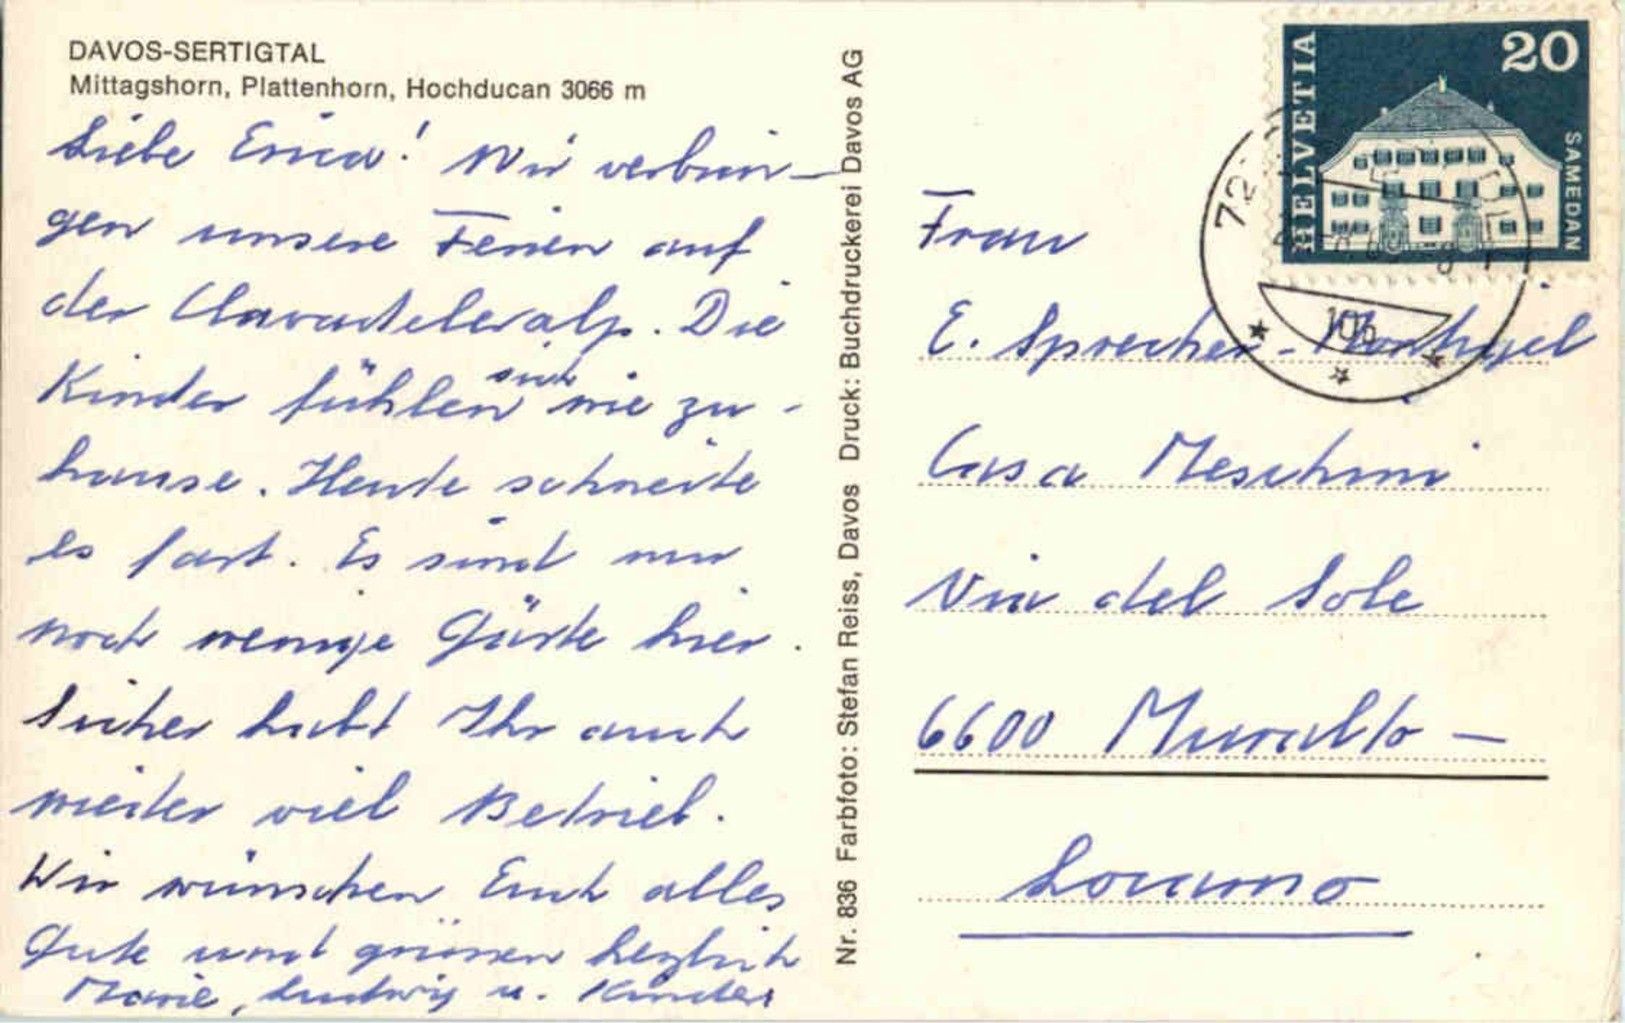 DAVOS-SERTIGTAL
Mittagshorn, Plattenhorn, Hochducan 3066 m
Liebe Erica! Wir verbrin-
gen unsere Ferien auf
der Clavadeleralp. Die
Kinder fühlen sich wie zu-
hause. Heute schneite
es fast. Es sind nur
noch wenige Gäste hier.
Sicher habt Ihr auch
wieder viel Betrieb.
Wir wünschen Euch alles
Gute und grüssen herzlich
Marie, Ludwig u. Kinder
Nr. 836 Farbfoto: Stefan Reiss, Davos Druck: Buchdruckerei Davos AG
HELVETIA
20
SAMEDAN
Frau
E. Sprecher-
Casa Meschini
Via del Sole
6600 Muralto -
Locarno